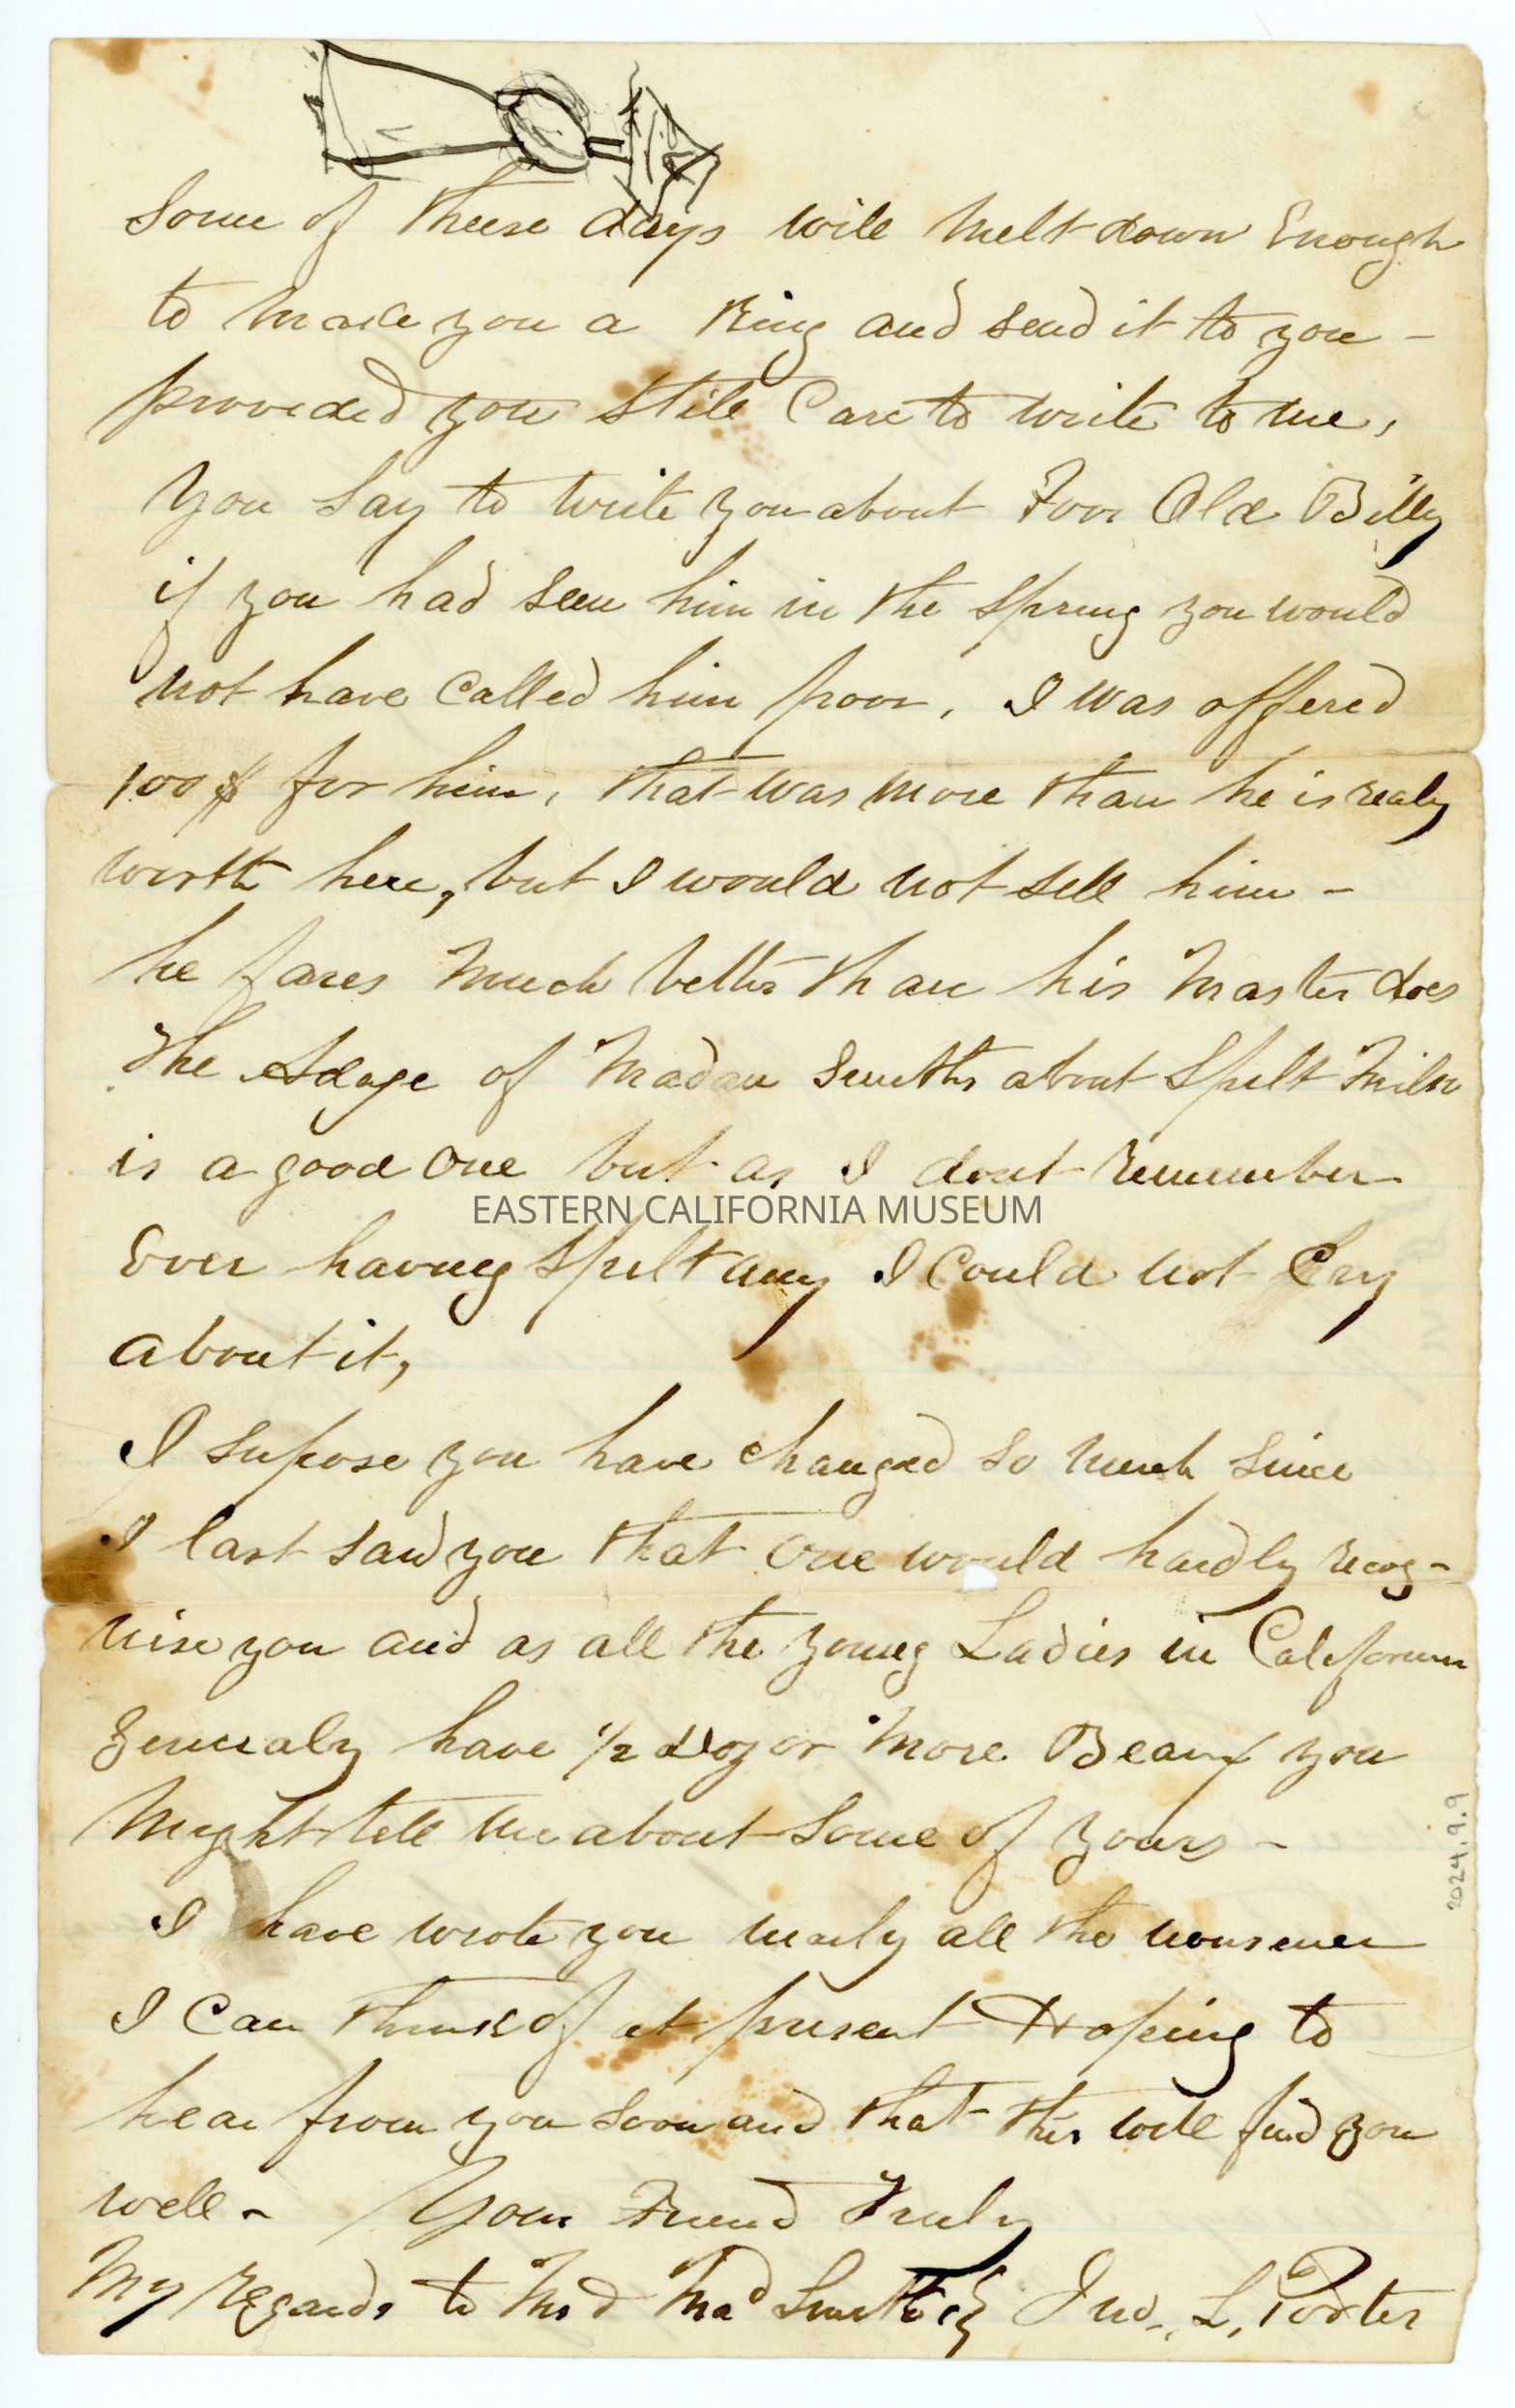 Some of these days will melt down Enough
to make you a Ring and send it to you -
provided you still Care to write to me,
You say to write you about Poor Old Billy
if you had seen him in the Spring you would
not have called him poor. I was offered
100$ for him, that was more than he is realy
worth here, but I would not sell him -
he fares much better than his Master does
The Adage of Madam Smiths about Spilt Milk
is a good one but as I dont remember
Ever having Spilt any I Could not Cry
about it,
I supose you have changed so much since
I last saw you that one would hardly recog-
nise you and as all the young Ladies in California
generaly have 1/2 doz or more Beaux you
Might tell me about some of yours -
I have wrote you nearly all the nonsence
I Can think of at present Hoping to
hear from you soon and that this will find you
well - Your Friend Truly
My Regards to Smith Jno. L. Porter
EASTERN CALIFORNIA MUSEUM
2024.9.9